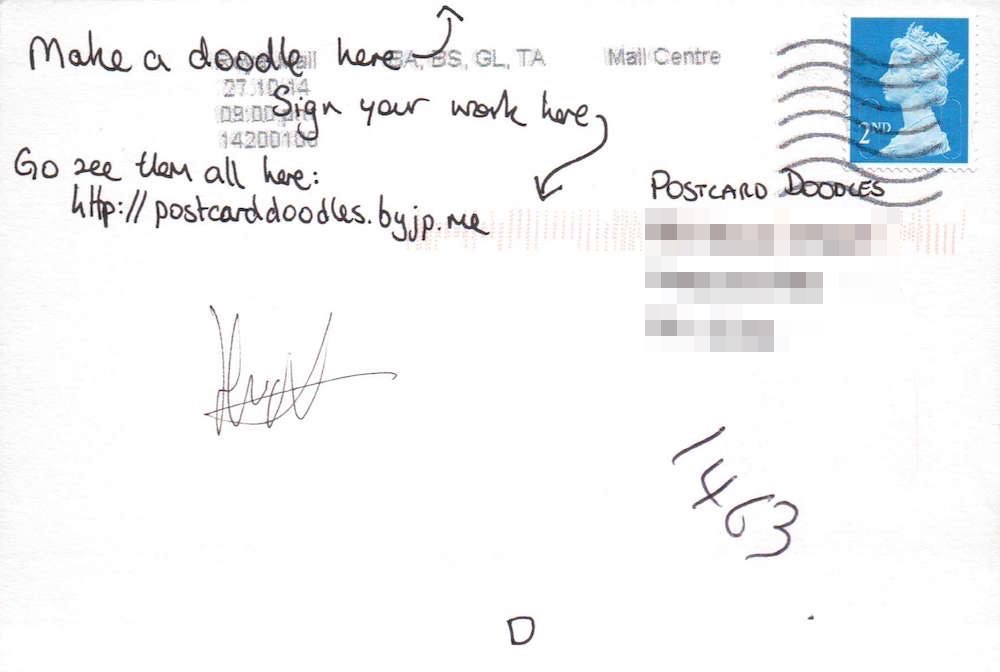 Make a doodle here
Royal Mail BA, BS, GL, TA Mail Centre
27.10.14
09:00 pm
Sign your work here
14200106
Go see them all here:
http://postcarddoodles.byjp.me
2ND
POSTCARD DOODLES
1463
D